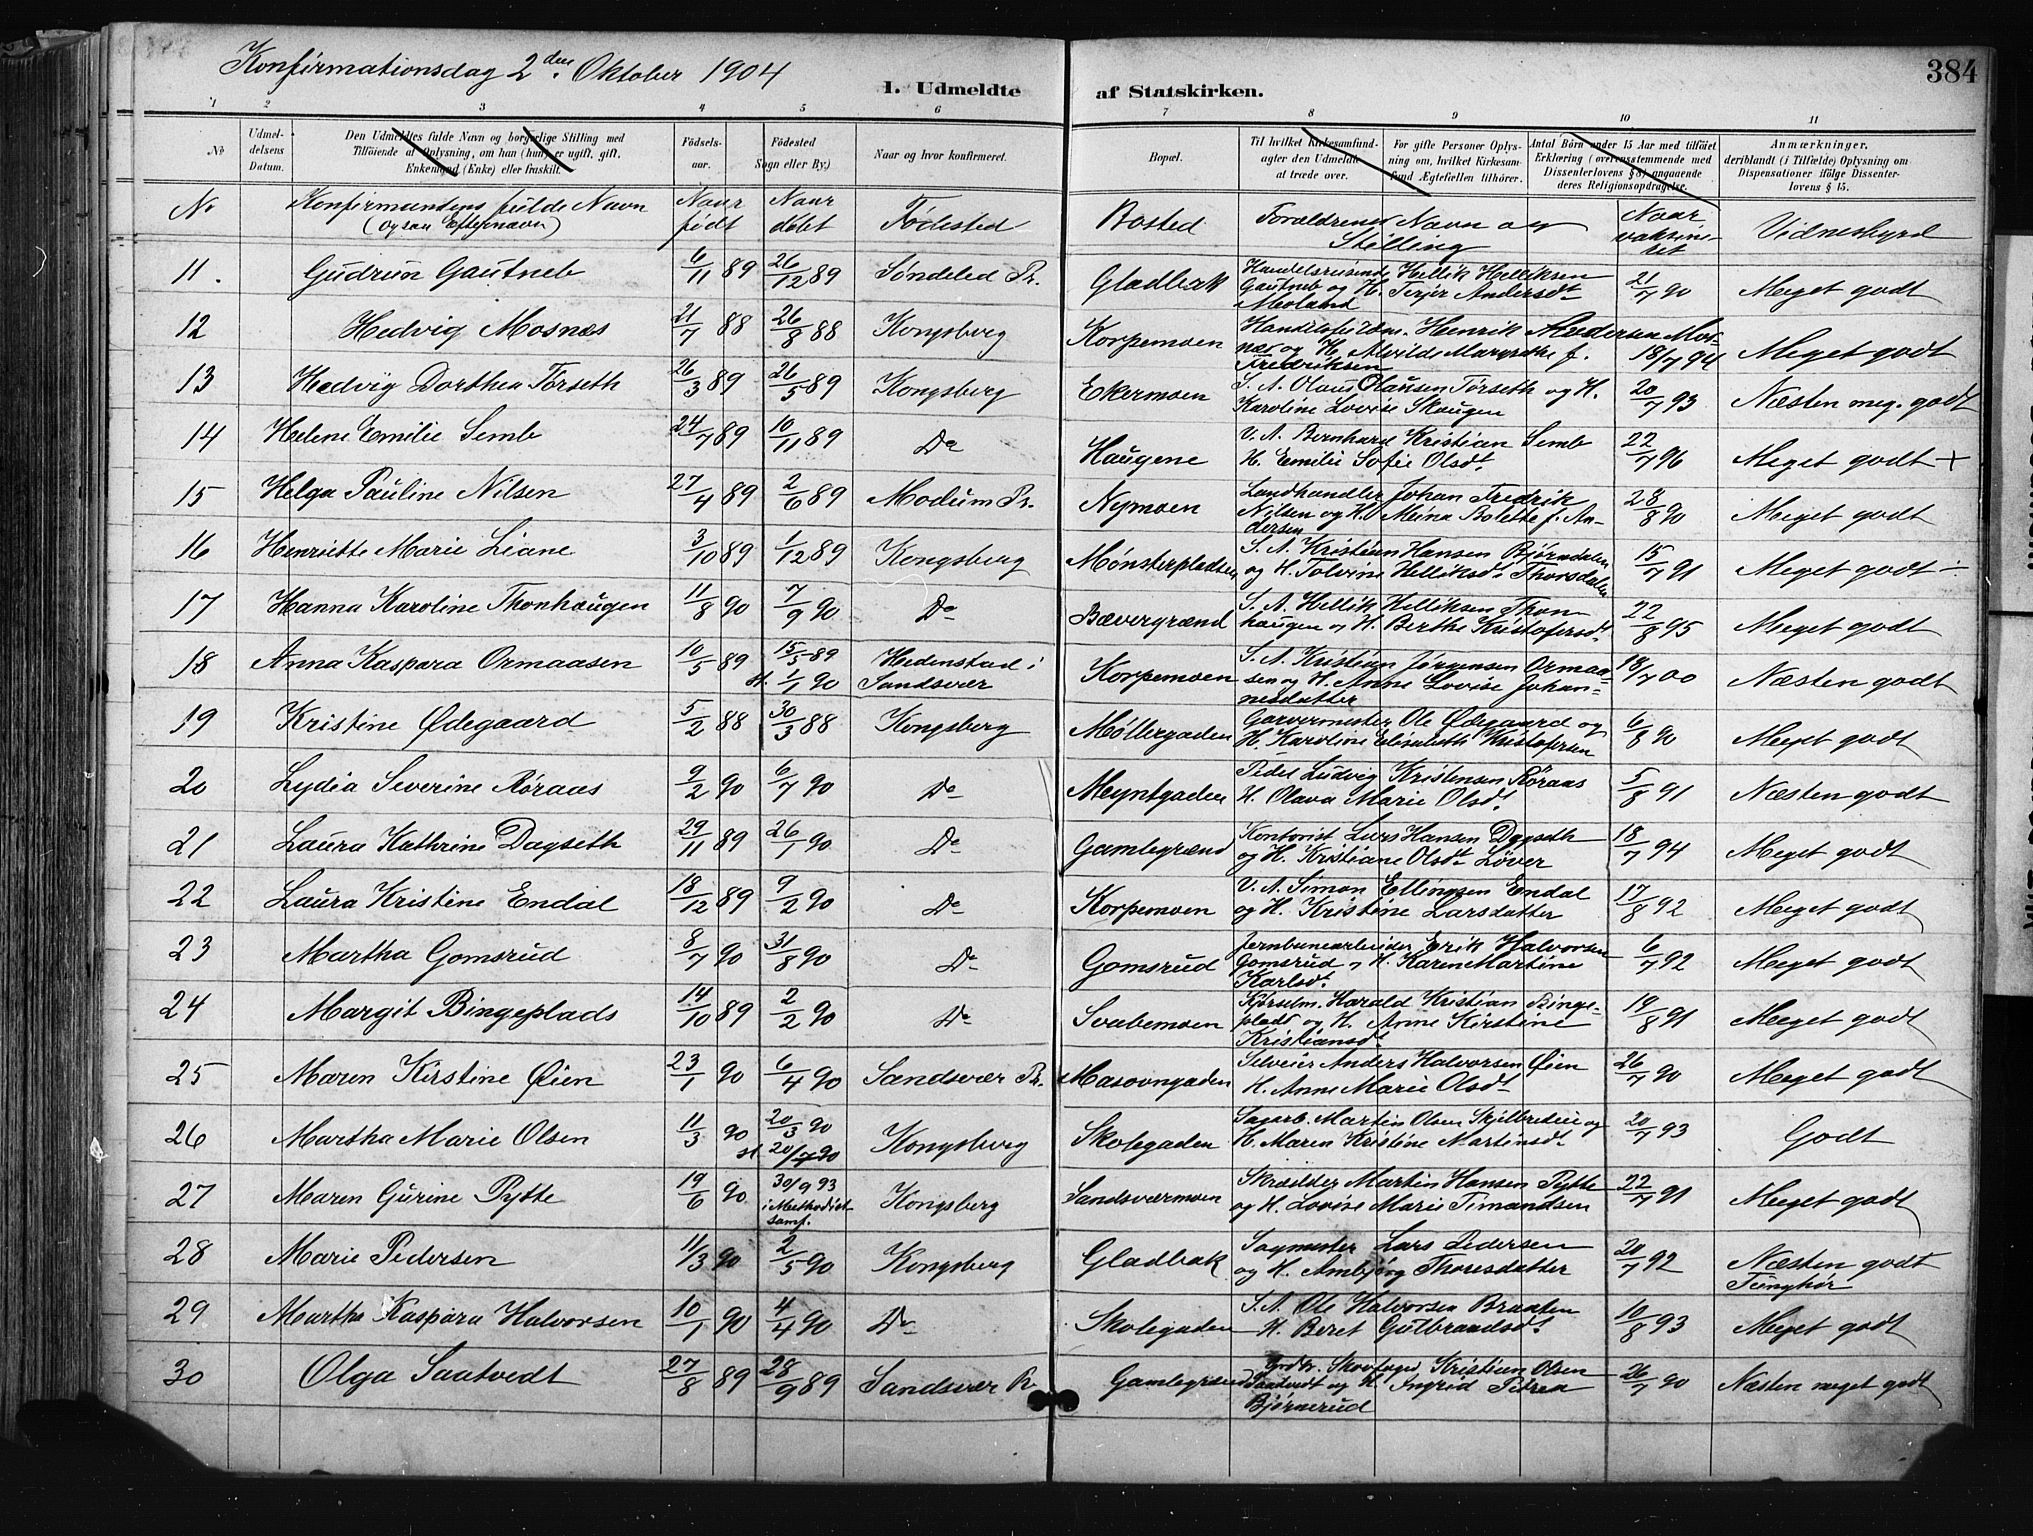 Konfirmationsdag 2den Oktober 1904
384
I. Udmeldte af Statskirken.
1 2 3 4 5 6 7 8 9 10 11
No. | Udmeldelsens Datum. | Den Udmeldtes fulde Navn og borgerlige Stilling med Tilføiende af Oplysning, om han (hun) er ugift, gift, Enkemand (Enke) eller fraskilt. | Fødselsaar. | Fødested (Sogn eller By.) | Naar og hvor konfirmeret. | Bopæl. | Til hvilket Kirkesamfund agter den Udmeldte at træde over. | For gifte Personer Oplysning om, hvilket Kirkesamfund Ægtefællen tilhører. | Antal Børn under 15 Aar med tilføiet Erklæring (overensstemmende med Dissenterlovens § 8) angaaende deres Religionsopdragelse. | Anmærkninger, deriblandt (i Tilfælde) Oplysning om Dispensationer ifølge Dissenterlovens § 15.
No | Konfirmandens fulde Navn (ogsaa Efternavn) | Naar født | Naar døbt | Fødested | Bosted | Forældrenes Navn og Stilling | Naar vaksineret | Vidnesbyrd
11. | Gudrun Gautneb | 6/11 89 | 26/12 89 | Søndeled Pr. | Gladbak | Handelsreisende Hellik Helliksen Gautneb og H. Terjer Andersdt Meoland | 21/7 90 | Meget godt
12 | Hedvig Mosnæs | 21/7 88 | 26/8 88 | Kongsberg | Korpemoen | Henrik Andersen Mosnæs og H. Alvilde f. Fredriksen | 18/7 94 | Meget godt
13 | Hedvig Dorthea Tørseth | 26/3 89 | 26/5 89 | Kongsberg | Ekermoen | S. A. Olaus Olausen Tørseth og H. Karoline Lovise Skaugen | 20/7 93 | Næsten meg. godt
14 | Helene Emilie Semb | 24/7 89 | 10/11 89 | Do | Haugene | V. A. Bernhard Kristian Semb H. Emilie Sofie Olsdt. | 22/7 96 | Meget godt +
15 | Helga Pauline Nilsen | 27/4 89 | 2/6 89 | Modum Pr. | Nymoen | Landhandler Johan Fredrik Nilsen og H. Meina Bolette f. Andersen | 28/8 90 | Meget godt
16 | Henriette Marie Liane | 3/10 89 | 1/12 89 | Kongsberg | Mønsterpladsen | S. A. Kristian Hansen Bjørndalen og H. Tolvine Helliksdt. Thorsdalen | 15/7 91 | Meget godt ÷
17 | Hanna Karoline Thonhaugen | 11/8 90 | 7/9 90 | Do | Bævergrænd | S. A. Hellik Helliksen Thonhaugen og H. Berthe Kristofersdt. | 22/8 95 | Meget godt
18 | Anna Kaspara Ormaasen | 10/5 89 | 15/5 89 st. 1/1 90 | Hedenstad i Sandsvær | Korpemoen | S. A. Kristian Jørgensen Ormaasen og H. Anne Lovise Johannesdatter | 18/7 00 | Næsten godt
19 | Kristine Ødegaard | 5/2 88 | 30/3 88 | Kongsberg | Møllergaden | Garvermester Ole Ødegaard og H. Karoline Elisabeth Kristofersen | 6/8 90 | Meget godt
20 | Lydia Severine Røraas | 9/2 90 | 6/7 90 | Do | Meyntgaden | Pedel Ludvig Kristensen Røraas H. Olava Marie Olsdt. | 5/8 91 | Næsten godt
21 | Laura Kathrine Dagseth | 29/11 89 | 26/1 90 | Do | Gamlegrænd | Kontorist Lars Hansen Dagseth og H. Kristiane Olsdt. Løver | 18/7 94 | Meget godt
22 | Laura Kristine Endal | 18/12 89 | 9/2 90 | Do | Korpemoen | V. A. Simon Ellingsen Endal og H. Kristine Larsdatter | 17/8 92 | Meget godt
23 | Martha Gomsrud | 8/7 90 | 31/8 90 | Do | Gomsrud | Jernbanearbeider Erik Halvorsen Gomsrud , H. Karen Martine Karlsdt. | 6/7 92 | Meget godt
24 | Margit Bingeplads | 14/10 89 | 2/2 90 | Do | Svabemoen | Kjørselm. Harald Kristian Bingeplads og H. Anne Kirstine Kristiansdt. | 19/8 91 | Meget godt
25 | Maren Kirstine Øien | 23/1 90 | 6/4 90 | Sandsvær Pr. | Masovngaden | Anders Halvorsen Øien H. Anne Marie Olsdt. | 26/7 90 | Meget godt
26 | Martha Marie Olsen | 11/3 90 | 20/3 90 st. 20/7 90 | Kongsberg | Skolegaden | Sagarb. Martin Olsen og H. Maren Kristine Martinsdt. | 20/7 93 | Godt
27 | Maren Gurine Pytte | 19/6 90 | 30/9 93 i Methodistsamf. | Kongsberg | Sandsværmoen | Martin Hansen Pytte og H. Lovise Marie Simandsen | 22/7 91 | Meget godt
28 | Marie Pedersen | 11/3 90 | 2/5 90 | Kongsberg | Gladbak | Sagmester Lars Pedersen og H. Ambjørg Thoresdatter | 20/7 92 | Næsten godt Tunghør
29 | Martha Kaspara Halvorsen | 10/1 90 | 4/4 90 | Do | Skolegaden | S. A. Ole Halvorsen Braaten H. Beret Gulbrandsdt. | 10/8 93 | Meget godt
30 | Olga Saatvedt | 27/8 89 | 28/9 89 | Sandsvær Pr | Gamlegrænd | Skovfoged Kristian Olsen Saatvedt og H. Ingrid Petrea Bjørnerud | 26/7 90 | Næsten meget godt